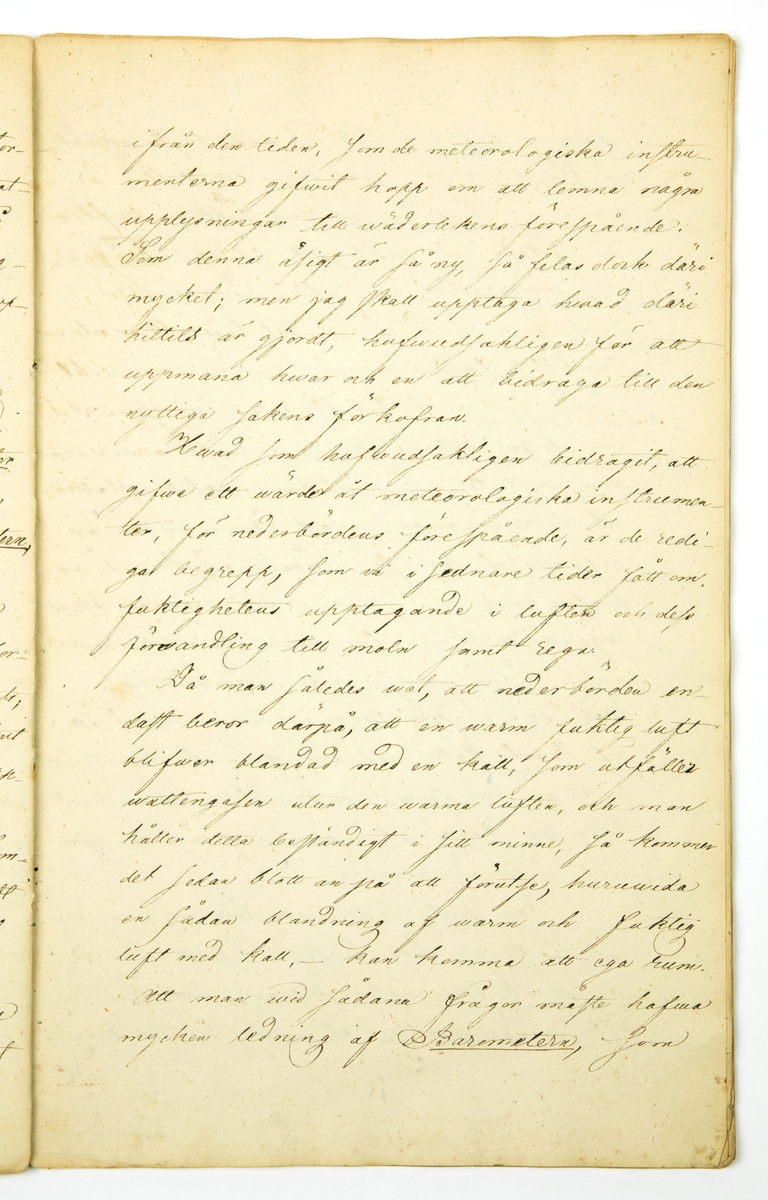 ifrån den tiden, som de meteorologiska instru-
menterna gifwit hopp om att lemna några
upplysningar till wäderlekens förespående.
Som denna åsigt är så ny, så felas dock däri
mycket; men jag skall upptaga hwad däri
hittils är gjordt, hufwudsakligen för att
uppmana hwar och en att bidraga till den
nyttiga sakens förkofran.
Hwad som hufwudsakligen bidragit, att
gifwa ett wärde åt meteorologiska instrumen-
ter, för nederbördens förespående, är de redi-
ga begrepp, som wi i sednare tider fått om
fuktighetens upptagande i luften och dess
förwandling till moln samt regn.
Då man således wet, att nederbörden en-
dast beror därpå, att en warm fuktig luft
blifwer blandad med en kall, som utfäller
wattengasen utur den warma luften, och man
håller detta beständigt i sitt minne, så kommer
det sedan blott an på att förutse, huruwida
en sådan blandning af warm och fuktig
luft med kall, — kan komma att ega rum.
Att man wid sådana frågor måste hafwa
mycken ledning af Barometern, som
tor-
at-
ter
tern,